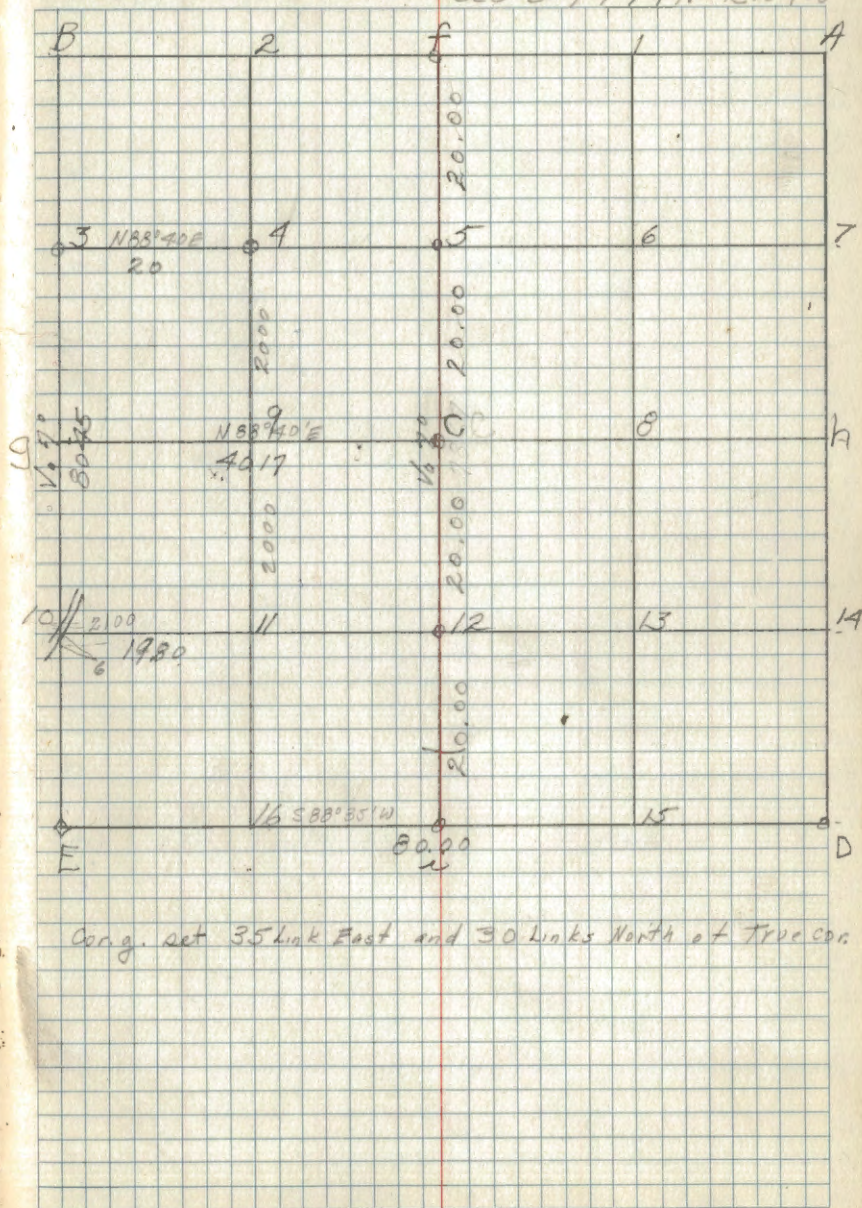 B 2 f 1 A
20.00
3 N88°40E 4 5 6 7
20
2000 20.00
9 C 8 h
g Va 7° N88°40'E Va 7°
8045 4017
2000 20.00
10 2100 11 12 13 14
6 1980
20.00
16 S88°35'W 15
E 80.00 D
i
Cor. g. set 35 Link East and 30 Links North of True cor.